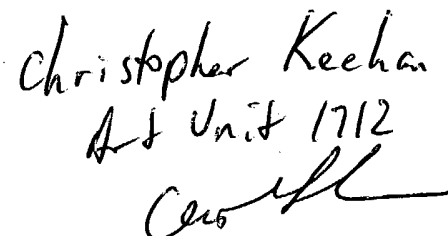 Christopher Keehan
Art Unit 1712